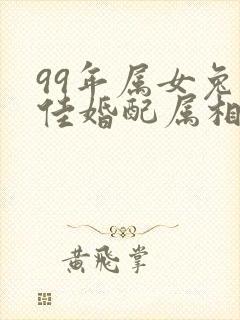 99年属女兔
佳婚配属相
黄飛掌